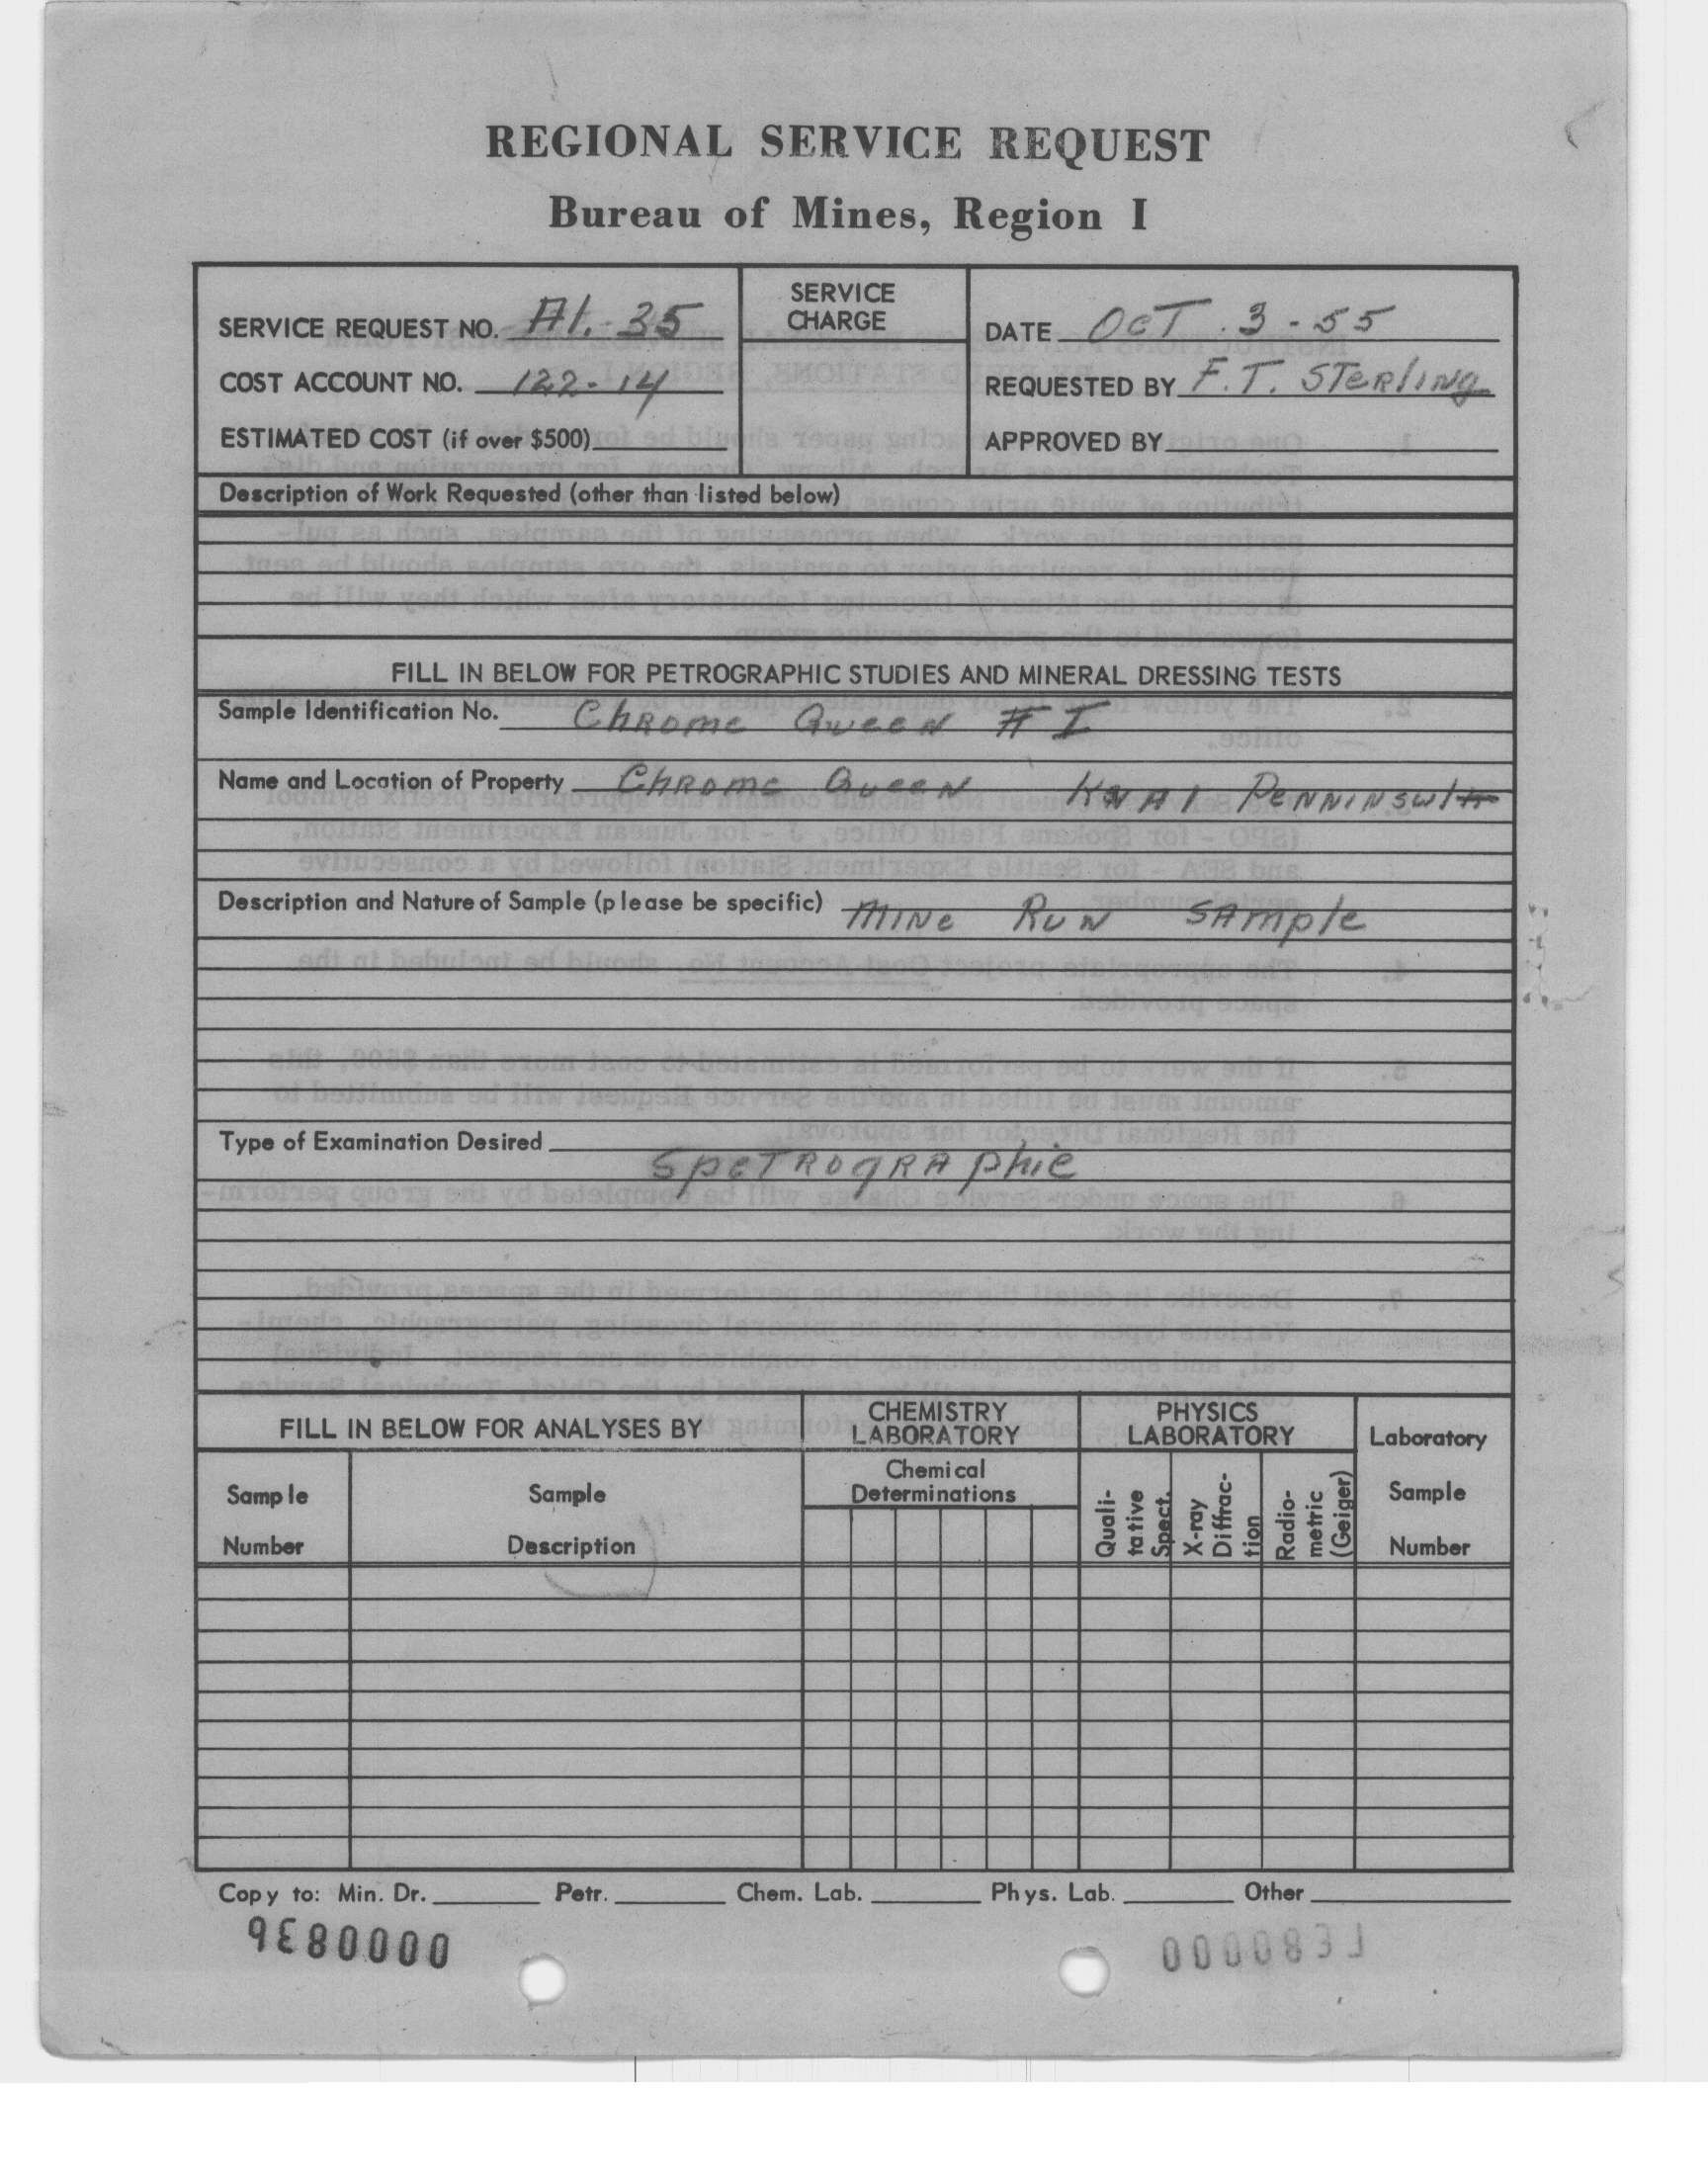 REGIONAL SERVICE REQUEST
Bureau of Mines, Region I
SERVICE REQUEST NO. Al.-35
COST ACCOUNT NO. 122-14
ESTIMATED COST (if over $500)
SERVICE
CHARGE
DATE OcT. 3-55
REQUESTED BY F.T. STerling
APPROVED BY
Description of Work Requested (other than listed below)
FILL IN BELOW FOR PETROGRAPHIC STUDIES AND MINERAL DRESSING TESTS
Sample Identification No. Chrome Queen # I
Name and Location of Property Chrome Queen
Description and Nature of Sample (please be specific) Mine Run Sample
Type of Examination Desired
SpeTrographic
FILL IN BELOW FOR ANALYSES BY
CHEMISTRY
LABORATORY
PHYSICS
LABORATORY
Laboratory
Sample
Number
Sample
Number
Sample
Description
Chemical
Determinations
Quali-
tative
Spect.
X-ray
Diffrac-
tion
Radio-
metric
(Geiger)
Copy to: Min. Dr. Petr. Chem. Lab. Phys. Lab. Other